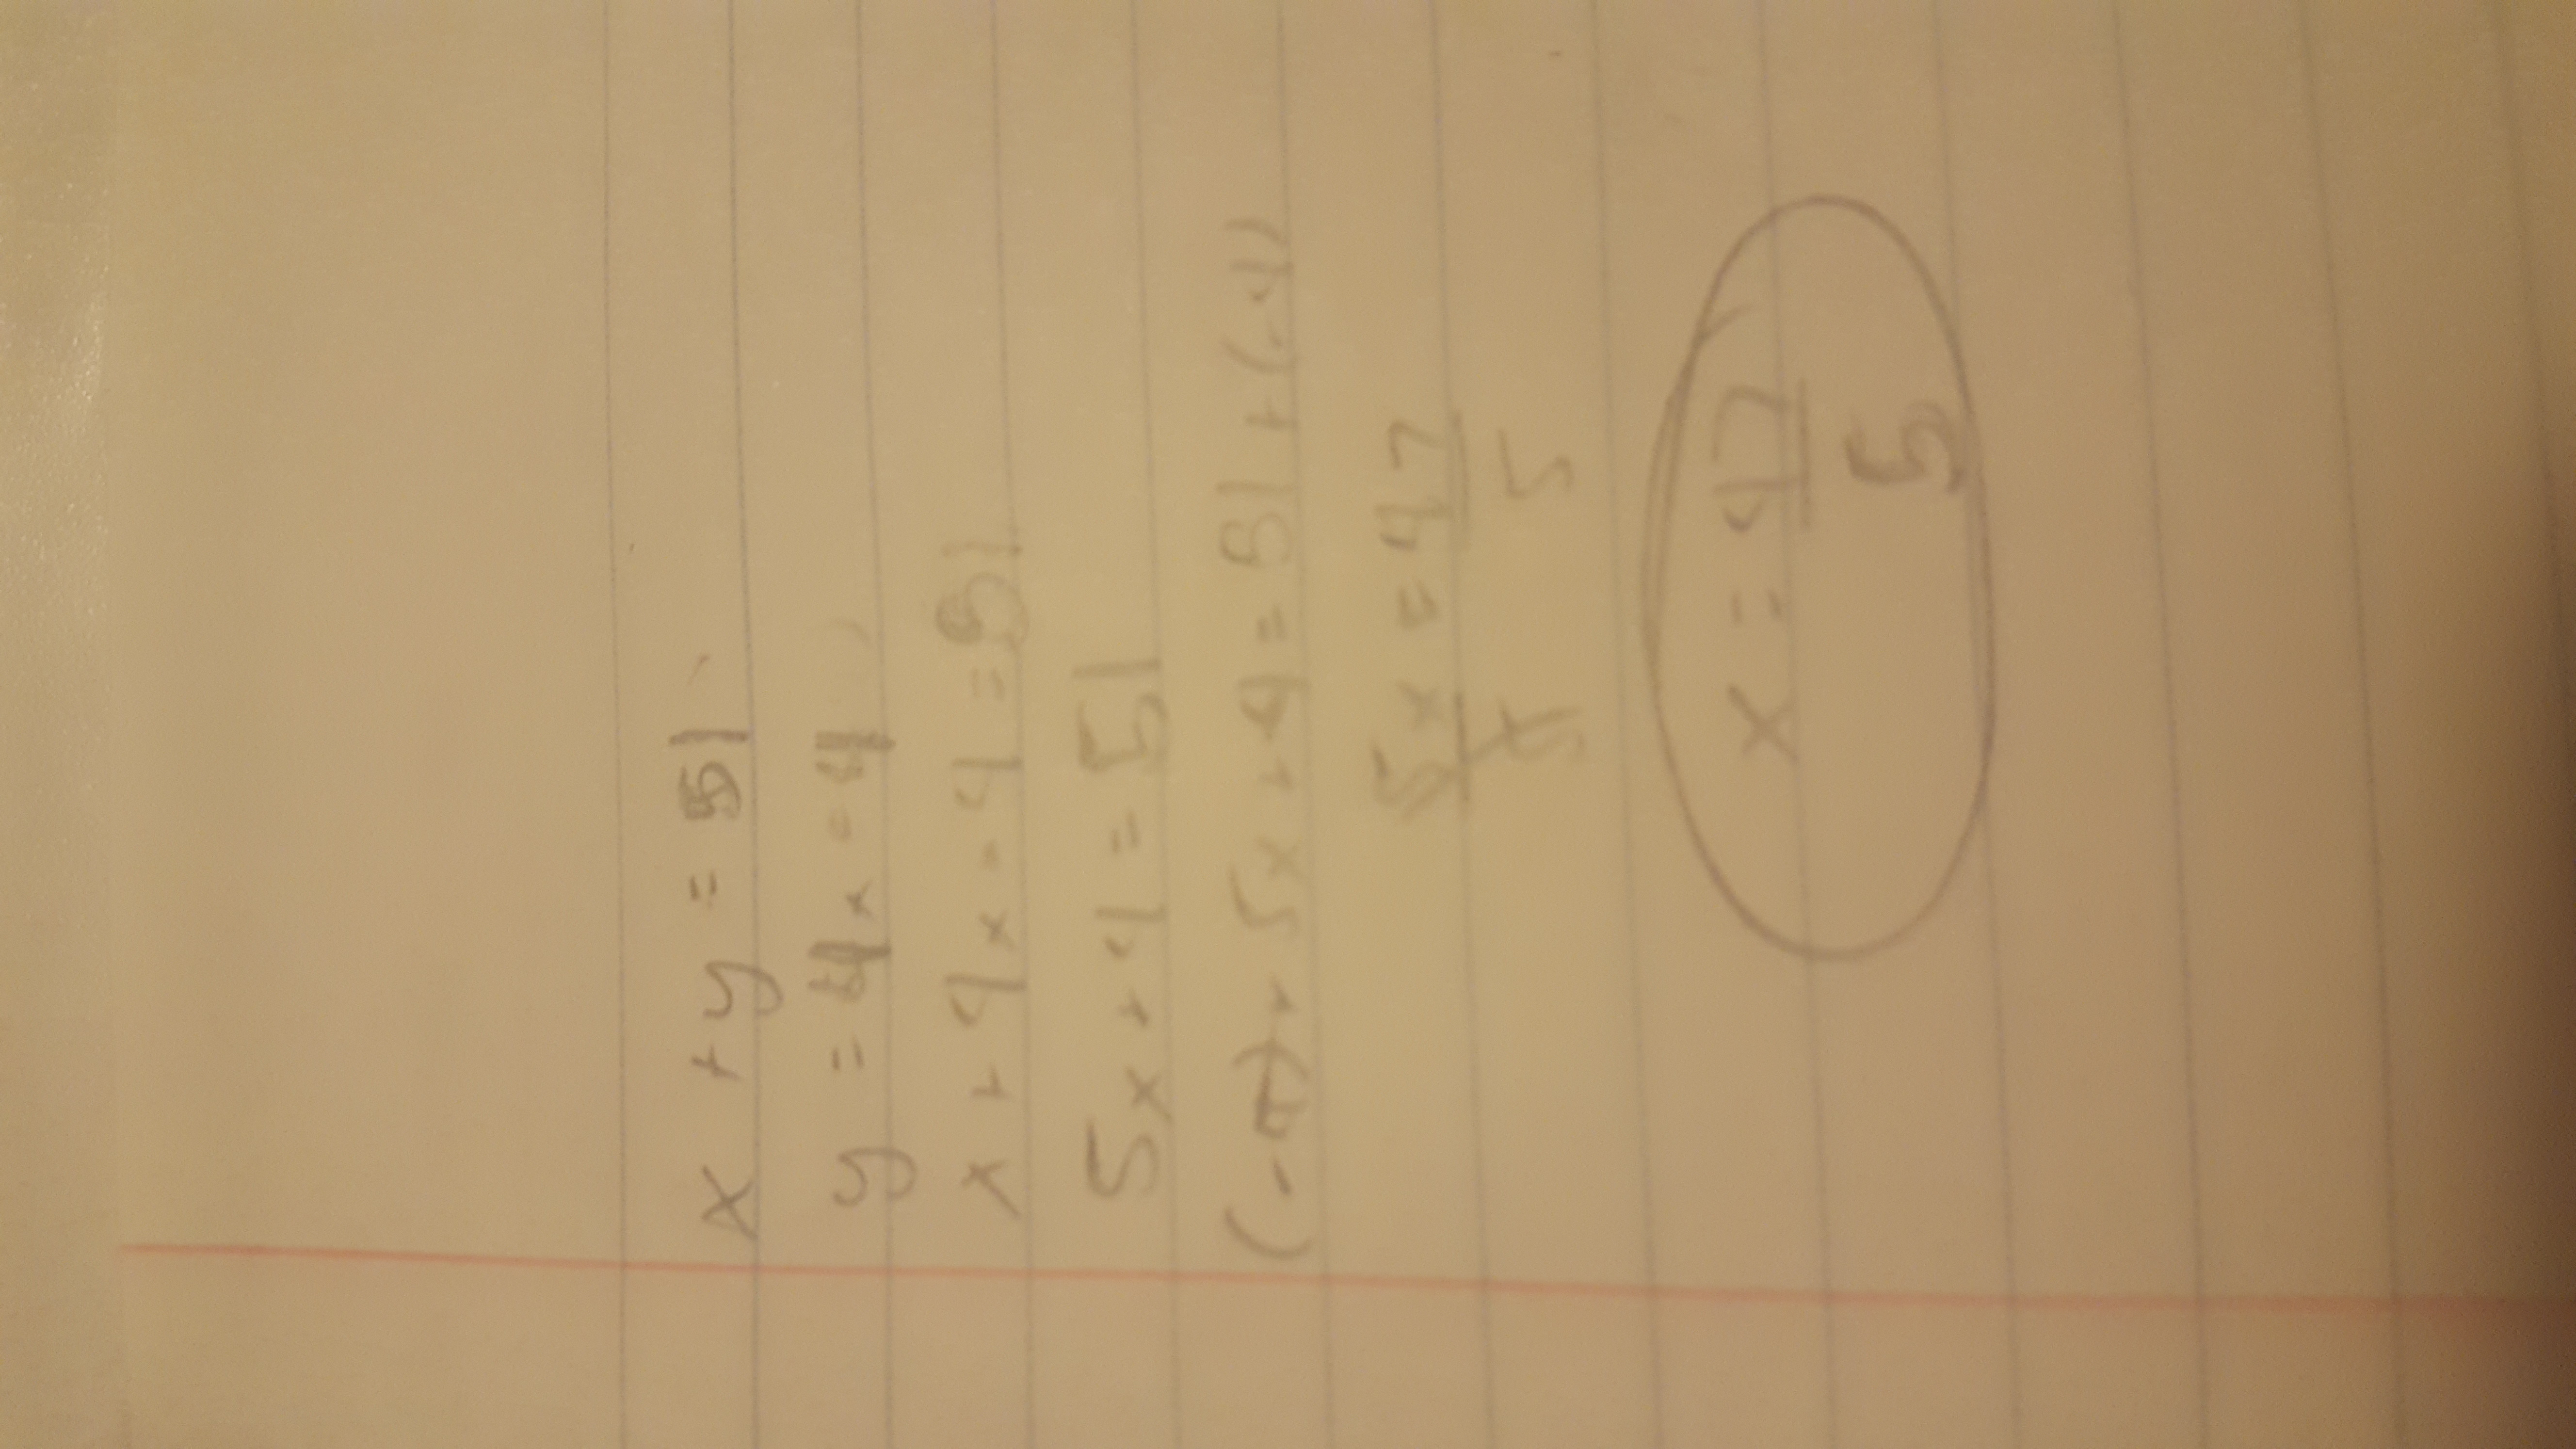 x + y = 51
y = 4x - 4
x + 4x - 4 = 51
5x + 4 = 51
(-4) + 5x + 4 = 51 + (-4)
5x = 47
5 5
x = 47
5